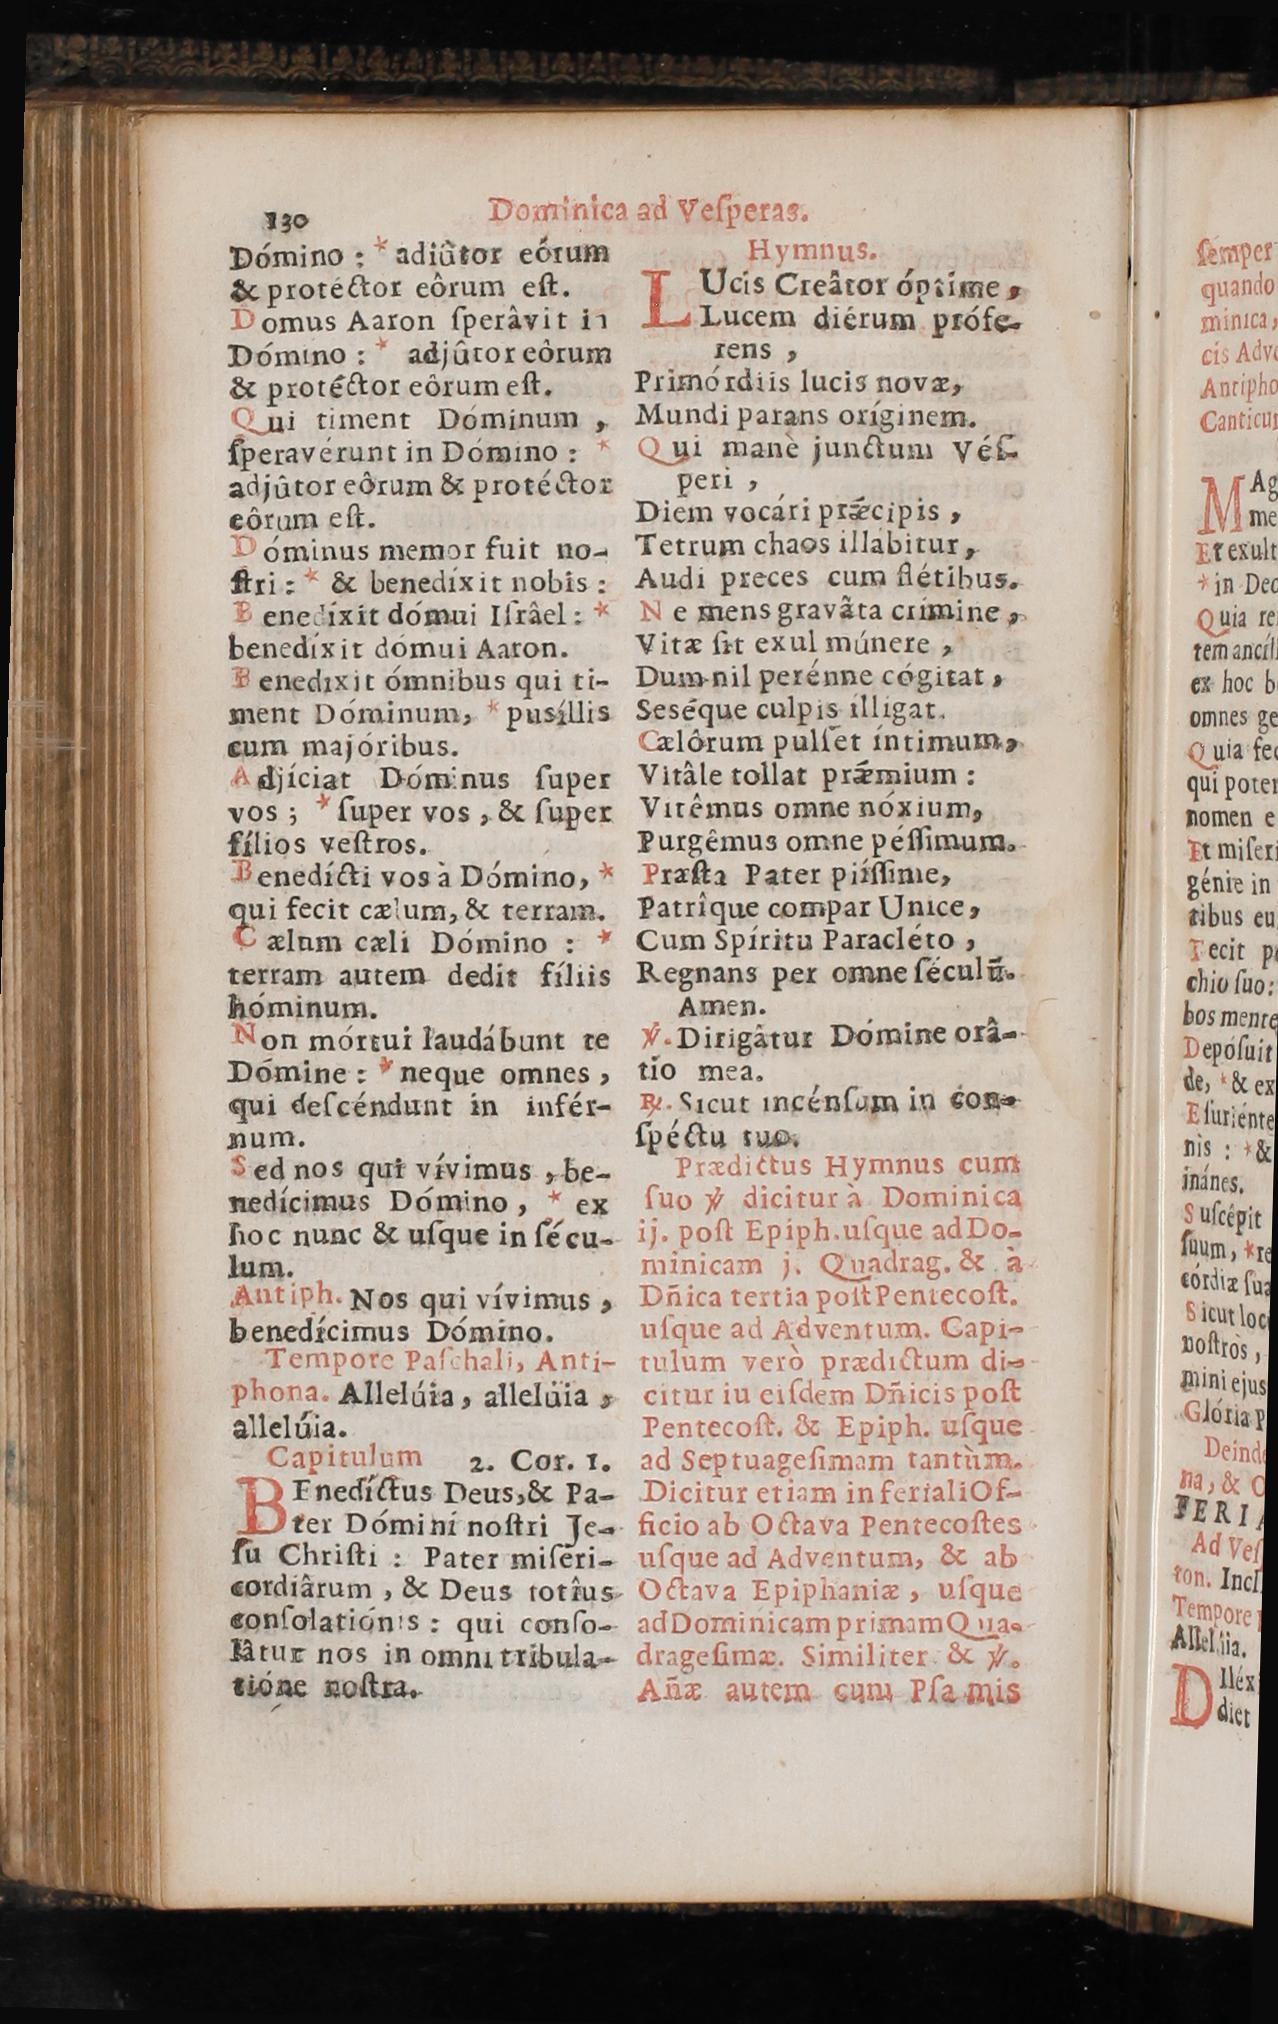 130
Dominica ad Veſperas.
Dómino : * adiûtor eórum
& protéctor eôrum eſt.
Domus Aaron ſperâvit in
Dómino : * adjûtor eôrum
& protéctor eôrum eſt.
Qui timent Dóminum ,
ſperavérunt in Dómino : *
adjûtor eôrum & protéctor
eôrum eſt.
Dóminus memor fuit no-
ſtri : * & benedíxit nobis :
Benedíxit dómui Iſrâel : *
benedíxit dómui Aaron.
Benedixit ómnibus qui ti-
ment Dóminum, * puſíllis
cum majóribus.
Adjíciat Dóminus ſuper
vos ; * ſuper vos , & ſuper
fílios veſtros.
Benedícti vos à Dómino, *
qui fecit cælum, & terram.
Cælum cæli Dómino : *
terram autem dedit fíliis
hóminum.
Non mórtui laudábunt te
Dómine : * neque omnes ,
qui deſcéndunt in infér-
num.
Sed nos qui vívimus , be-
nedícimus Dómino , * ex
hoc nunc & uſque in ſécu-
lum.
Antiph. Nos qui vívimus ,
benedícimus Dómino.
Tempore Paſchali, Anti-
phona. Allelúia , allelüia ,
allelúia.
Capitulum 2. Cor. 1.
BEnedíctus Deus,& Pa-
ter Dómini noſtri Je-
ſu Chriſti : Pater miſeri-
cordiârum , & Deus totîus
conſolatiónis : qui conſo-
lâtur nos in omni tribula-
tióne noſtra.
Hymnus.
LUcis Creâtor óptime ,
Lucem diérum prófe-
rens ,
Primórdiis lucis novæ,
Mundi parans oríginem.
Qui manè junctum Véſ-
peri ,
Diem vocári prǽcipis ,
Tetrum chaos illabitur ,
Audi preces cum flétibus.
Ne mens gravãta crímine ,
Vitæ ſit exul múnere ,
Dum nil perénne cógitat ,
Seséque culpis illigat.
Cælôrum pulſet íntimum,
Vitâle tollat prǽmium :
Vitêmus omne nóxium,
Purgêmus omne péſſimum.
Præſta Pater piíſſime,
Patrîque compar Unice,
Cum Spíritu Paracléto ,
Regnans per omne ſéculũ.
Amen.
℣. Dirigâtur Dómine orâ-
tio mea.
℟. Sicut incénſum in con-
ſpéctu tuo.
Prædictus Hymnus cum
ſuo ℣ dicitur à Dominica
ij. poſt Epiph. uſque ad Do-
minicam j. Quadrag. & à
Dñica tertia poſt Pentecoſt.
uſque ad Adventum. Capi-
tulum verò prædictum di-
citur iu eiſdem Dñicis poſt
Pentecoſt. & Epiph. uſque
ad Septuageſimam tantùm.
Dicitur etiam in feriali Of-
ficio ab Octava Pentecoſtes
uſque ad Adventum, & ab
Octava Epiphaniæ , uſque
ad Dominicam primam Qua-
drageſimæ. Similiter & ℣.
Añæ autem cum Pſa mis
ſemper
quando
minica,
cis Adve
Antipho
Canticum
MAg
me
Et exult
* in Deo
Quia re
tem ancíl
ex hoc b
omnes ge
Quia fec
qui poten
nomen e
Et miſeri
génie in
tibus eu
Fecit p
chio ſuo:
bos mente
Depóſuit
de, * & ex
Eſuriénte
nis : * &
inánes.
Suſcépit
ſuum, * re
córdiæ ſua
Sicut loc
noſtros ,
mini ejus
Glória P
Deinde
na, & O
FERIA
Ad Veſ
ton. Incl
Tempore
Allelúia.
DIléx
diet